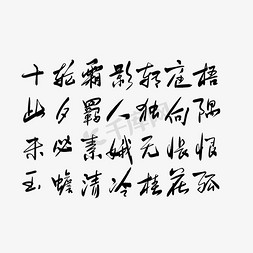 十轮霜影转庭梧
此夕羁人独向隅
未必素娥无怅恨
玉蟾清冷桂花孤